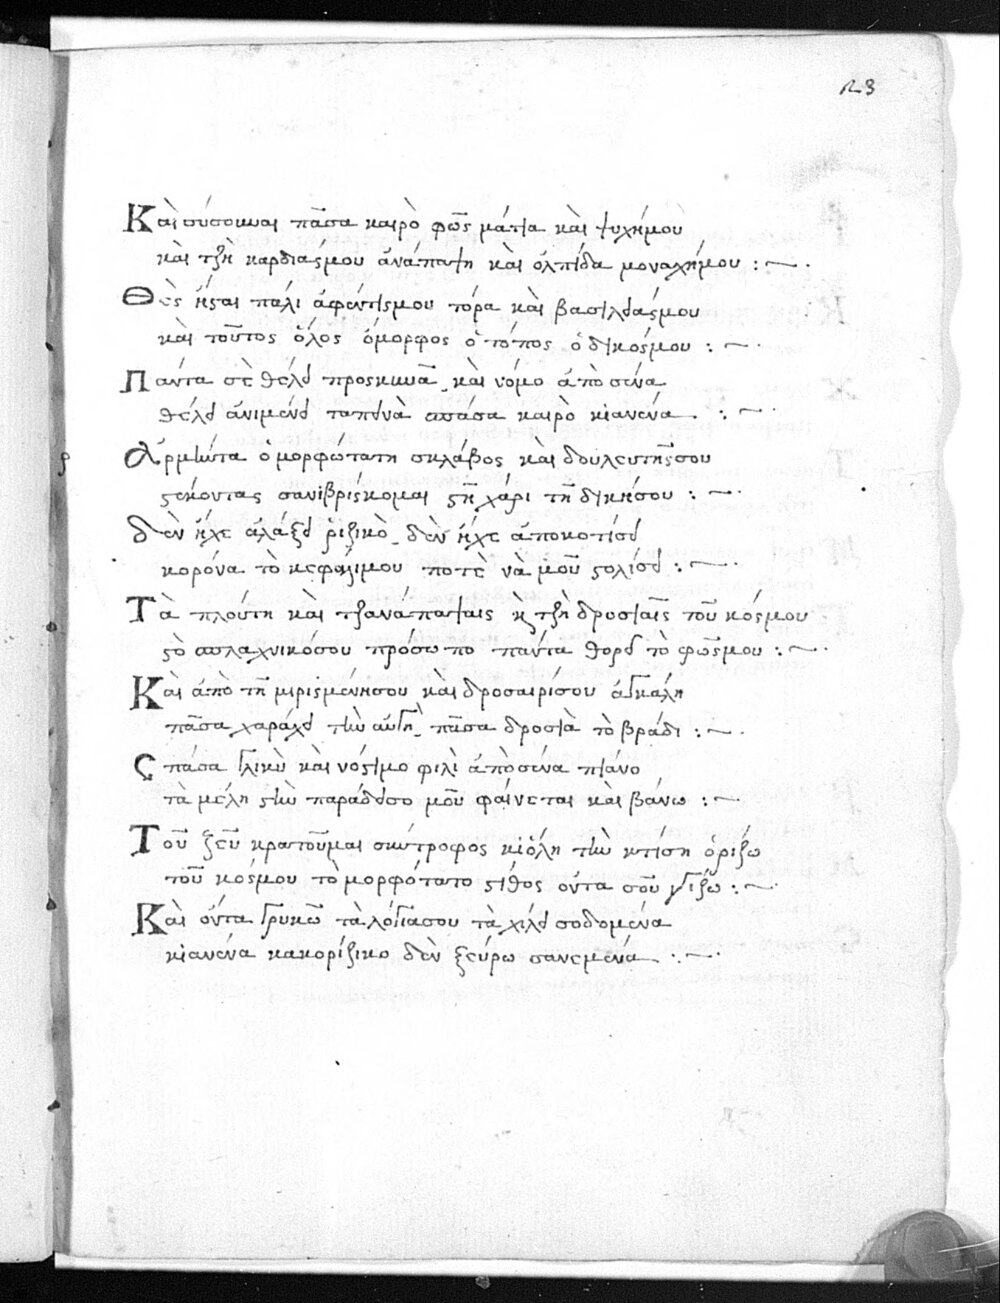 123
Καὶ σύσουναι πᾶσα καιρὸ φῶς μάτια καὶ ψυχήμου
καὶ τζὴ καρδιάςμου ἀνάπαψη καὶ ὀλπίδα μοναχήμου :~.
Θὲς ἦσαι πάλι ἀφέντιςμου τόρα καὶ βασιλέαςμου
καὶ τοῦτος ὅλος ὄμορφος ὁ τόπος ὁ δικόςμου :~.
Πάντα σὲ θέλει προσκυνᾶ καὶ νόμο ἀπὸ σένα
θέλει ἀνιμένει ταπινὰ πάσα καιρὸ κιανένα :~.
Ἀρμιντα ὁμορφώτατη σκλάβος καὶ δουλευτῆςσου
στέκοντας σανιβρίσκομαι στῆ χάρι τῆ δικήσου :~.
δὲν ἦχε ἀλάξει ῥιζικὸ δὲν ἦχε ἀποκοτίσει
κορόνα τὸ κεφάλιμου ποτὲ νὰ μοῦ στολίσει :~.
Τὰ πλούτη καὶ τζανάπαψαις κ τζὴ δροσιαῖς τοῦ κόσμου
στὸ σπλαχνικόσου πρόσωπο πάντα θορῶ τὸ φῶςμου :~.
Καὶ ἀπὸ τῆ μιρισμένησου καὶ δροσαιρήσου ἀγκάλη
πᾶσα χαράζει τὴν αὐγὴ πᾶσα δροσιὰ τὸ βράδι :~.
Σ πάσα γλικὺ καὶ νόστιμο φιλὶ ἀπὸ σένα πιάνο
τὰ μέλη στὴν παράδεισο μοῦ φαίνεται καὶ βάνω :~
Τοῦ ζεῦ κρατοῦμαι σύντροφος κιόλη τὴν κτίση ὁρίζω
τοῦ κόσμου τὸ μορφότατο στῆθος ὅντα σοῦ γγίζω :~.
Καὶ ὅντα γρυκῶ τὰ λόγιασου τὰ χίλει σοδομένα
κιανένα κακορίζικο δὲν ξεύρω σανεμένα :~.